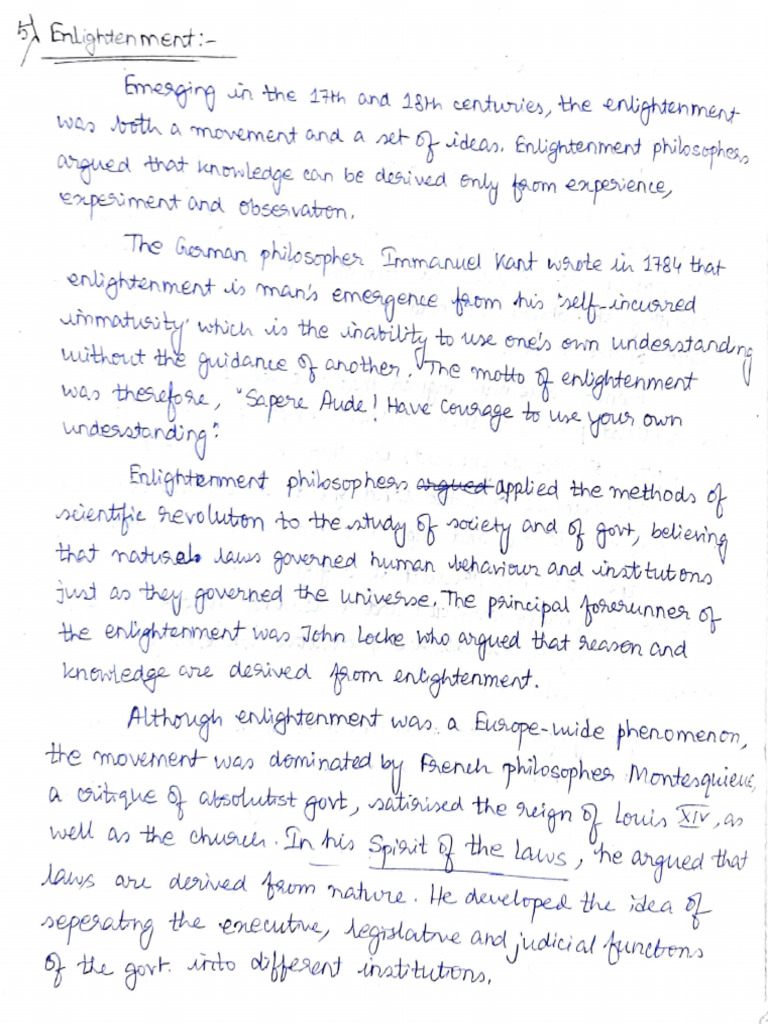 5) Enlightenment:-
Emerging in the 17th and 18th centuries, the enlightenment
was both a movement and a set of ideas. Enlightenment philosophers
argued that knowledge can be derived only from experience,
experiment and observation.
The German philosopher Immanuel Kant wrote in 1784 that
enlightenment is man's emergence from his 'self-incurred
immaturity' which is the inability to use one's own understanding
without the guidance of another. The motto of enlightenment
was therefore, "Sapere Aude! Have Courage to use your own
understanding".
Enlightenment philosophers argued applied the methods of
scientific revolution to the study of society and of govt, believing
that natural laws governed human behaviour and institutons
just as they governed the universe. The principal forerunner of
the enlightenment was John Locke who argued that reason and
knowledge are derived from enlightenment.
Although enlightenment was a Europe-wide phenomenon,
the movement was dominated by French philosopher Montesquieue,
a critique of absolutist govt, satirised the reign of Louis XIV, as
well as the church. In his Spirit of the Laws, he argued that
laws are derived from nature. He developed the idea of
seperating the executive, legislative and judicial functions
of the govt. into different institutions.